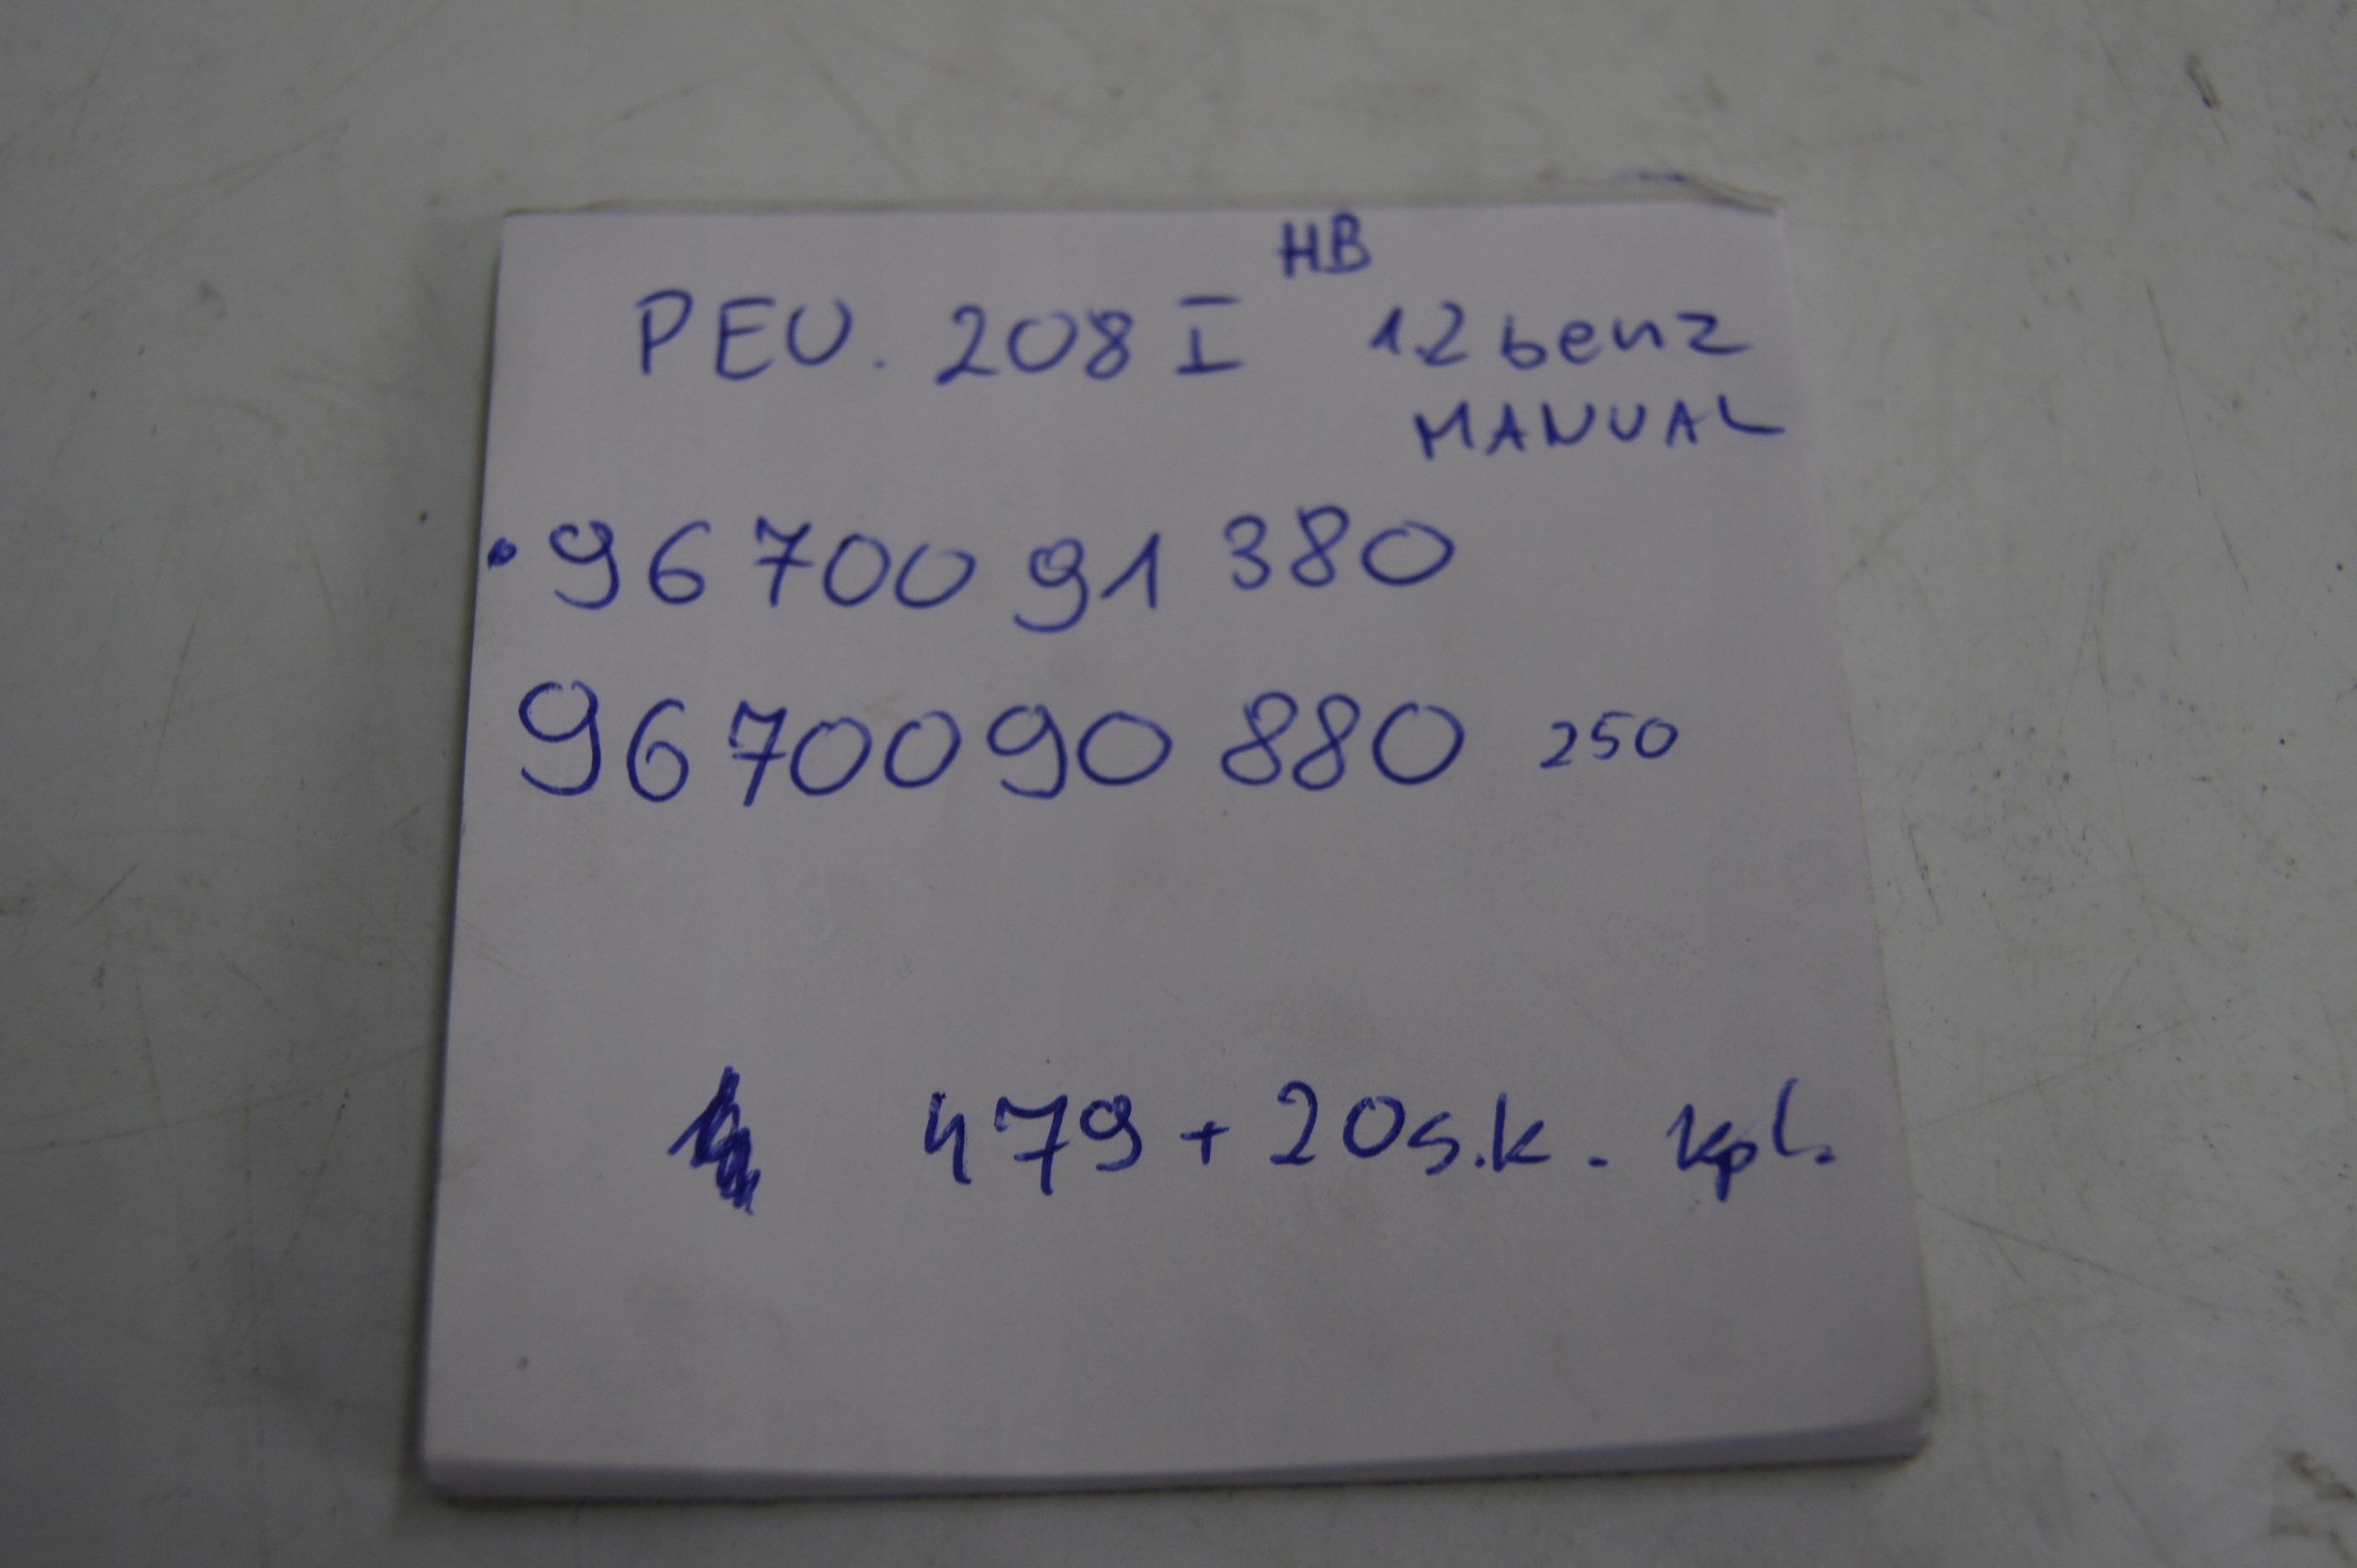 PEU. 208 I HB 1.2 benz
MANUAL
• 96 700 91 380
96 700 90 880 250
479 + 20 s.k. kpl.